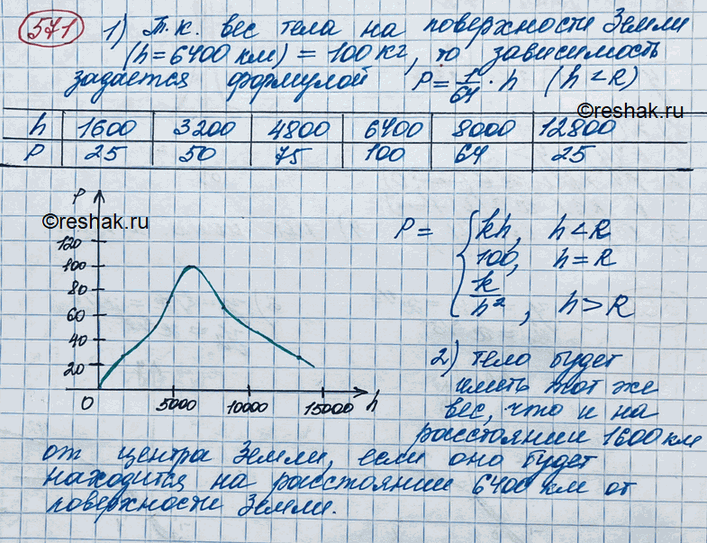 571 1) Т.к. вес тела на поверхности Земли
(h=6400 км) = 100 кг, то зависимость
задается формулой P=1/64·h (h<R)
©reshak.ru
h 1600 3200 4800 6400 8000 12800
P 25 50 75 100 64 25
©reshak.ru
P
120
100
80
60
40
20
0 5000 10000 15000 h
P= { kh, h<R
100, h=R
k/h², h>R
2) тело будет
иметь тот же
вес, что и на
расстоянии 1600 км
от центра Земли, если оно будет
находится на расстоянии 6400 км от
поверхности Земли.